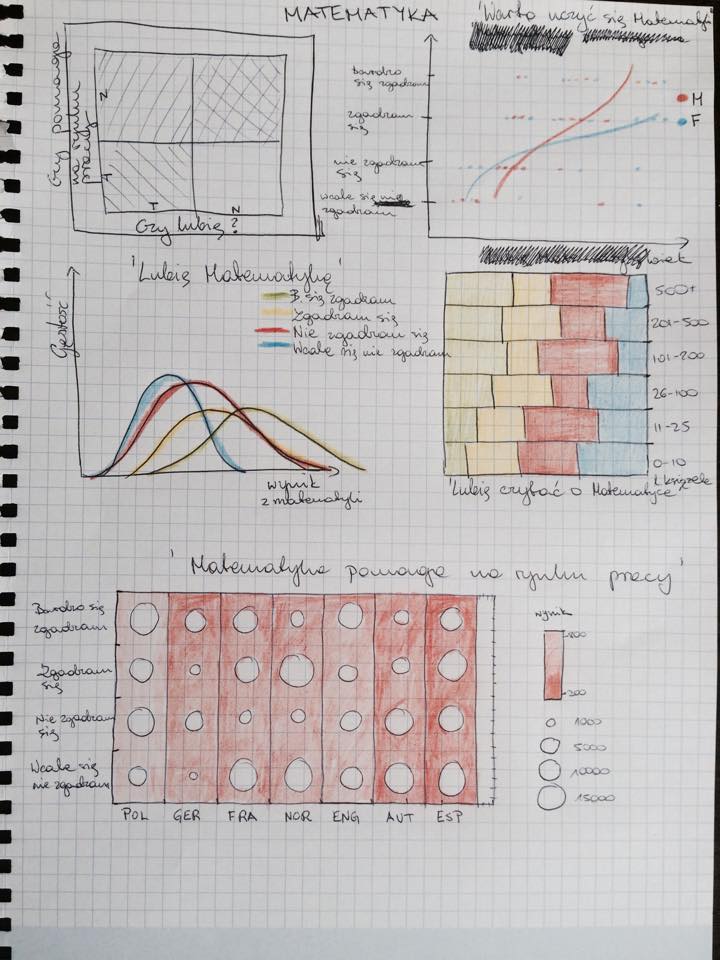 MATEMATYKA
'Warto uczyć się Matematyki'
Czy pomaga
na rynku
pracy
N
T
T
N
Czy lubię ?
bardzo
się zgadzam
zgadzam
się
nie zgadzam
się
wcale się nie
zgadzam
M
F
'Lubię Matematykę'
B. się zgadzam
Zgadzam się
Nie zgadzam się
Wcale się nie zgadzam
Gęstość
wynik
z matematyki
500+
201-500
101-200
26-100
11-25
0-10
L. książek
'Lubię czytać o Matematyce'
'Matematyka pomaga na rynku pracy'
Bardzo się
zgadzam
Zgadzam
się
Nie zgadzam
się
Wcale się
nie zgadzam
POL GER FRA NOR ENG AUT ESP
wynik
200
1000
5000
10000
15000